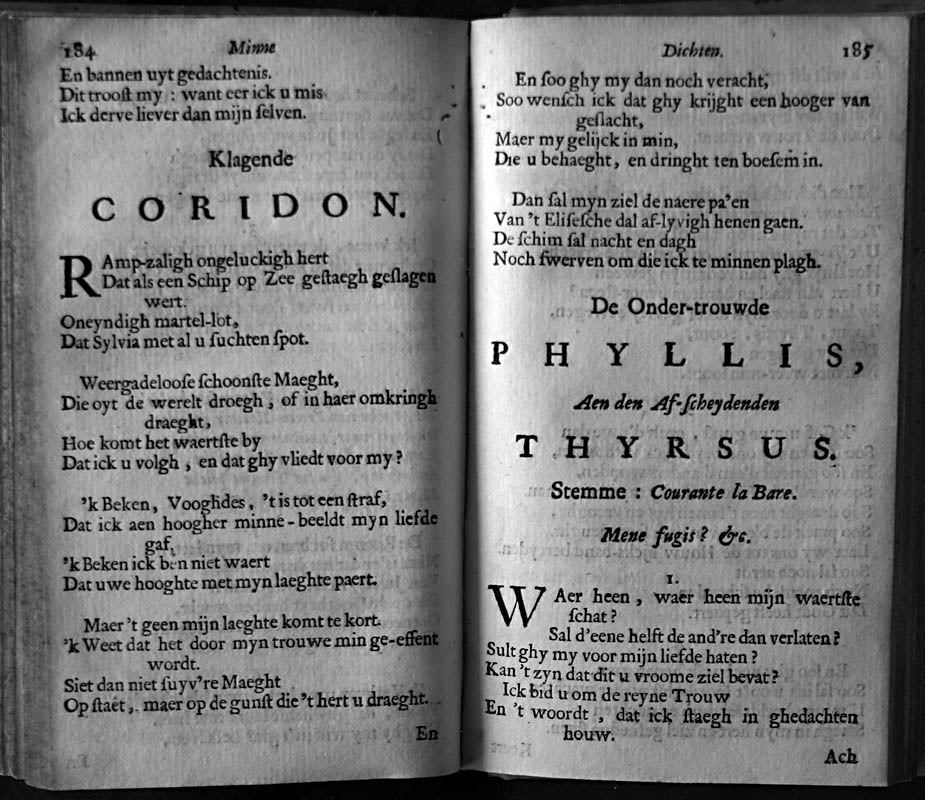 184 Minne
En bannen uyt gedachtenis.
Dit trooſt my : want eer ick u mis
Ick derve liever dan mijn ſelven.
Klagende
CORIDON.
RAmp-zaligh ongeluckigh hert
Dat als een Schip op Zee geſtaegh geſlagen
wert.
Oneyndigh martel-lot,
Dat Sylvia met al u ſuchten ſpot.
Weergadelooſe ſchoonſte Maeght,
Die oyt de werelt droegh, of in haer omkringh
draeght,
Hoe komt het waertſte by
Dat ick u volgh, en dat ghy vliedt voor my?
'k Beken, Vooghdes, 't is tot een ſtraf,
Dat ick aen hoogher minne-beeldt myn liefde
gaf,
'k Beken ick ben niet waert
Dat uwe hooghte met myn laeghte paert.
Maer 't geen mijn laeghte komt te kort.
'k Weet dat het door myn trouwe min ge-effent
wordt.
Siet dan niet ſuyv're Maeght
Op ſtaet, maer op de gunſt die 't hert u draeght.
En
Dichten. 185
En ſoo ghy my dan noch veracht,
Soo wenſch ick dat ghy krijght een hooger van
geſlacht,
Maer my gelijck in min,
Die u behaeght, en dringht ten boeſem in.
Dan ſal myn ziel de naere pa'en
Van 't Eliſeſche dal af-lyvigh henen gaen.
De ſchim ſal nacht en dagh
Noch ſwerven om die ick te minnen plagh.
De Onder-trouwde
PHYLLIS,
Aen den Af-ſcheydenden
THYRSUS.
Stemme : Courante la Bare.
Mene fugis? &c.
1.
WAer heen, waer heen mijn waertſte
ſchat?
Sal d'eene helft de and're dan verlaten?
Sult ghy my voor mijn liefde haten?
Kan 't zyn dat dit u vroome ziel bevat?
Ick bid u om de reyne Trouw
En 't woordt, dat ick ſtaegh in ghedachten
houw.
Ach